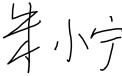 朱小宁